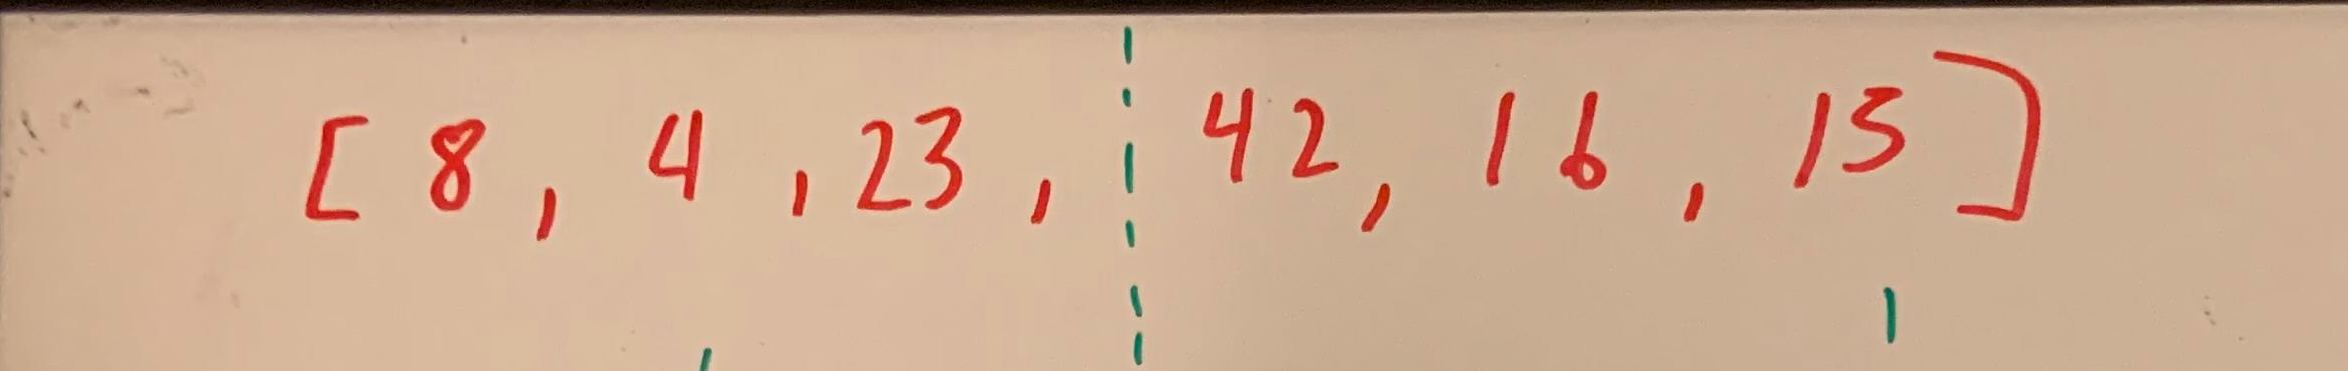 [ 8, 4, 23, 42, 16, 15 ]